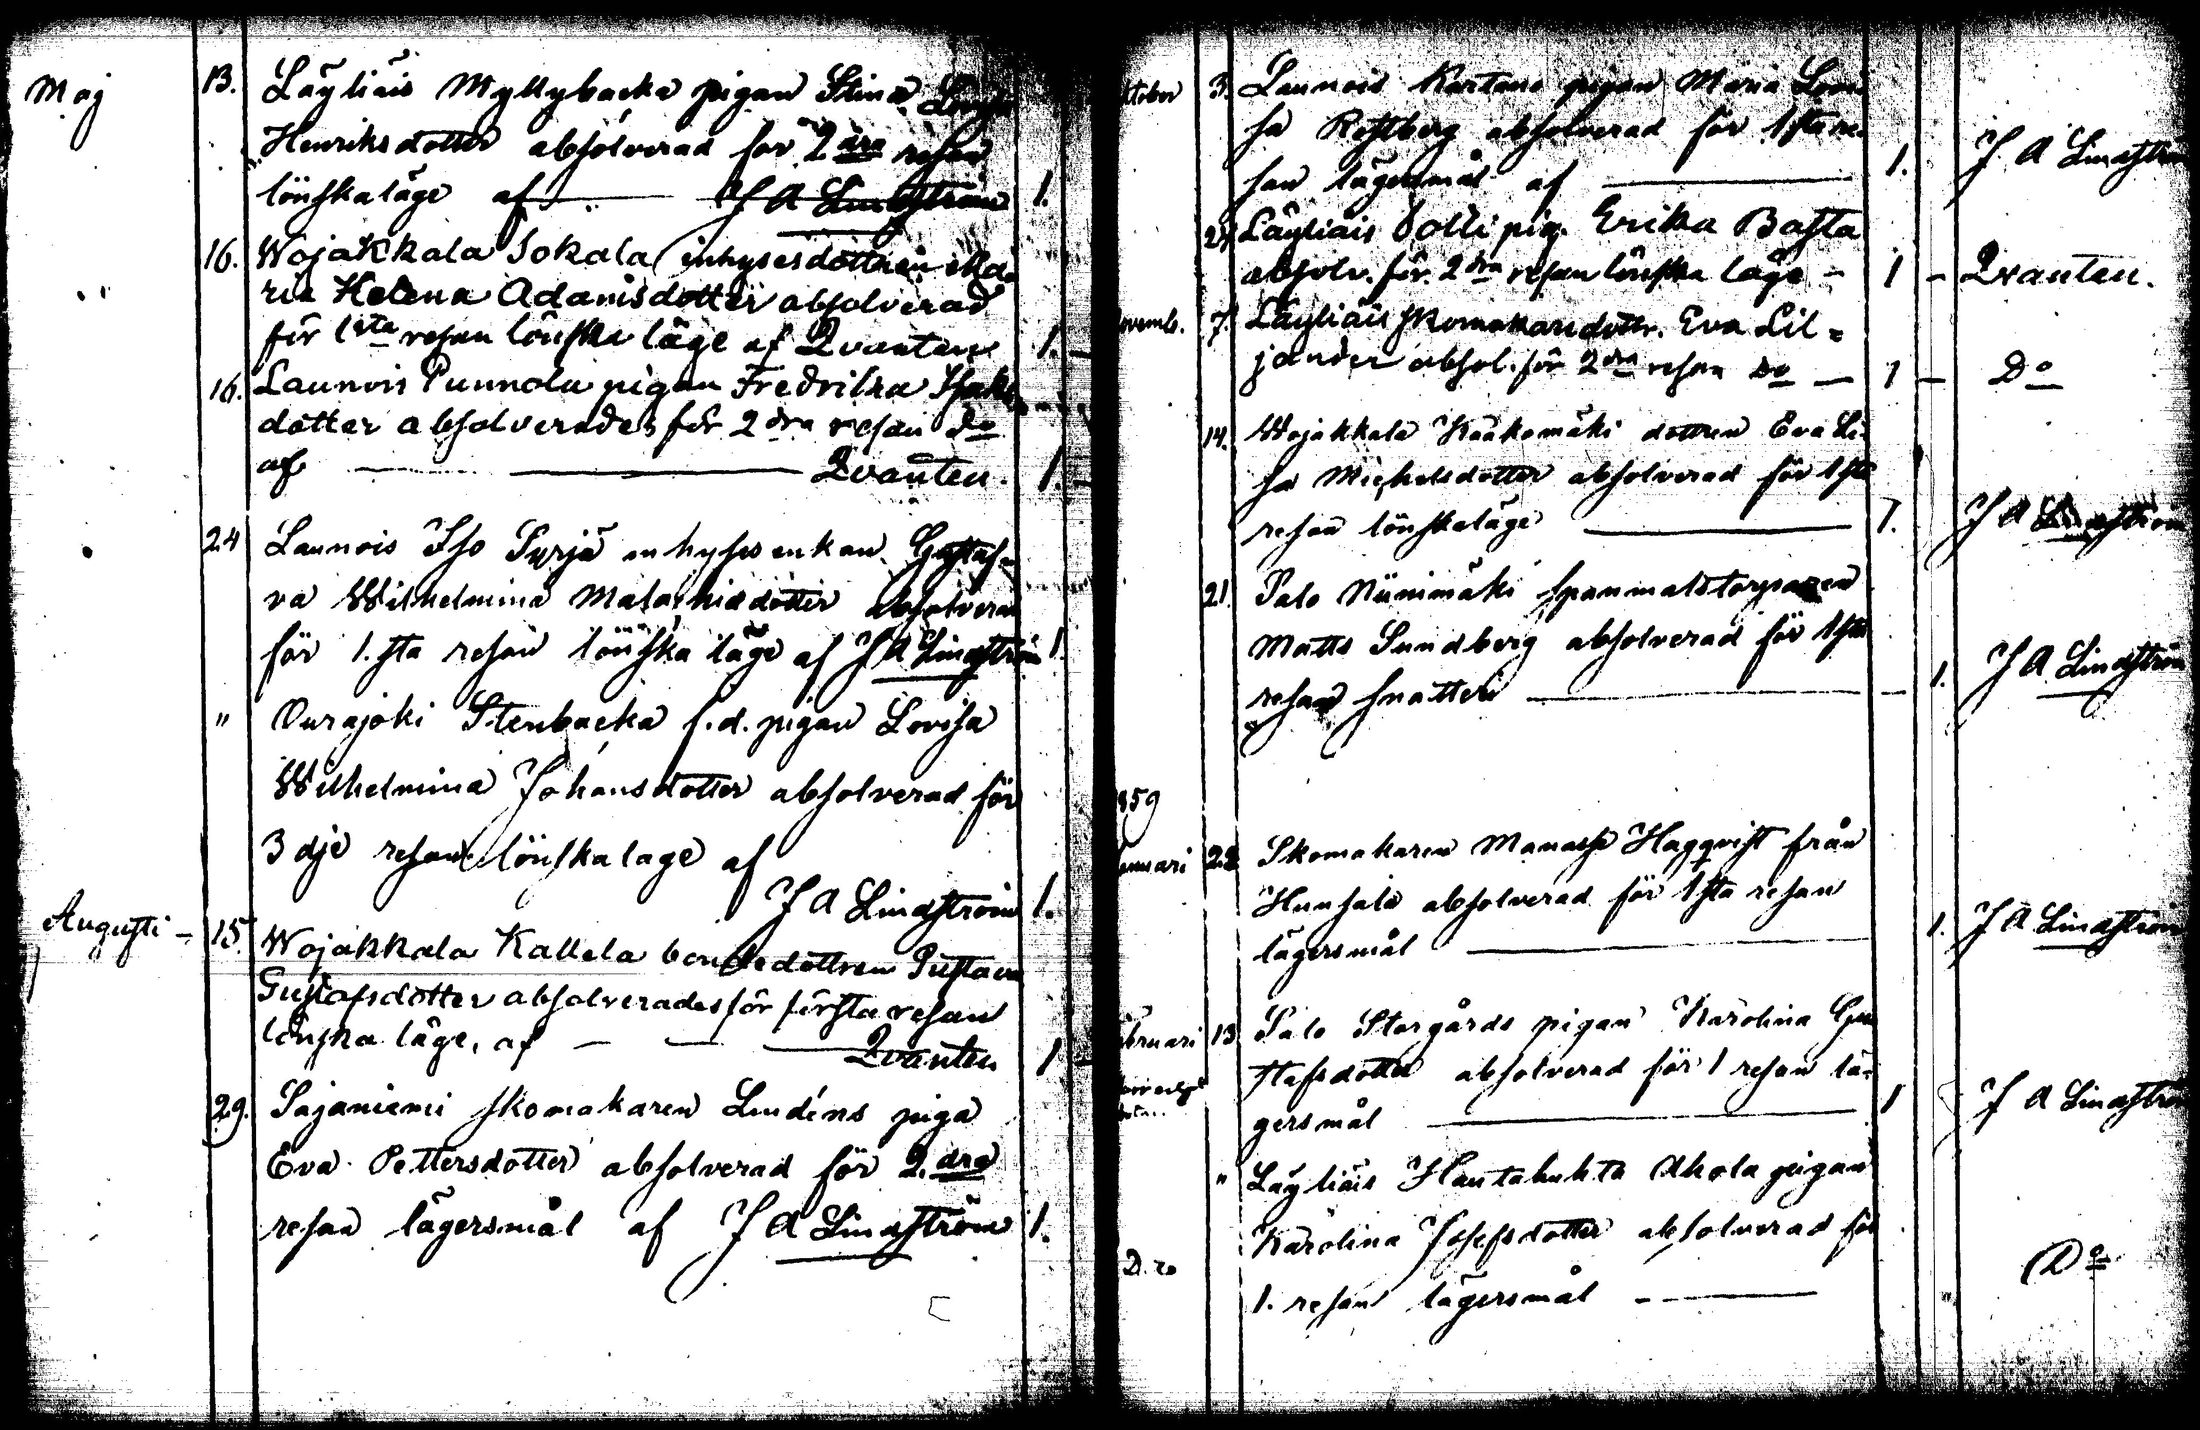 Maj 13. Läyliäis Myllybacka pigan Stina
Henriksdotter absolverad för 2dra resan
lönskaläge af — J A Lindström 1.
16. Wojakkala Sokala inhysesdottren Ma-
ria Helena Adamsdotter absolverad
för 1sta resan lönska läge af Qvanten 1. —
16. Launois Punnola pigan Fredrika Isaks
dotter absolverades för 2dra resan do
af — Qvanten. 1. —
24 Launois Iso Syrjä inhyses enkan Gustaf-
va Wilhelmina Malachiadotter absolverad
för 1.sta resan lönska läge af J A Lindström 1.
" Ourajoki Stenbacka f.d. pigan Lovisa
Wilhelmina Johansdotter absolverad för
3dje resan lönskaläge af
J A Lindström 1.
Augusti — 15. Wojakkala Kallela bondedottren Gustava
Gustafsdotter absolverades för första resan
lönska läge, af — Qvanten 1 —
29. Sajaniemi skomakaren Lindéns piga
Eva Pettersdotter absolverad för 2.dra
resan lägersmål af J A Lindström 1.
ktober 3. Launois Kartano pigan Maria Lovi
sa Rostberg absolverad för 1sta re-
san lägersmål af — 1. J A Lindström
Läyliäis Volli pig. Erika Basta
absolv. för 2dra resan lönska läge — 1 — Qvanten.
ovemb. 7. Läyliäis skomakaredottr. Eva Lil=
jander absol. för 2dra resan Do — 1 — Do
14. Wojakkala Kaakomäki dottren Eva Li-
sa Michelsdotter absolverad för 1sta
resan lönskaläge — 1. J A Lindström
21. Salo Niinimäki spanmalstorparen
Matts Sundberg absolverad för 1sta
resan snatteri — 1. J A Lindström
859
nuari 22 Skomakaren Manasse Hagqvist från
Hunsala absolverad för 1sta resan
lägersmål — 1. J A Lindström
ebruari 13 Salo Storgårds pigan Karolina Gu
stafsdotter absolverad för 1 resan lä-
gersmål — 1 J A Lindström
" Läyliäis Hautahuhta Ahola pigan
Karolina Josefsdotter absolverad för
D.ro 1. resan lägersmål — " Do